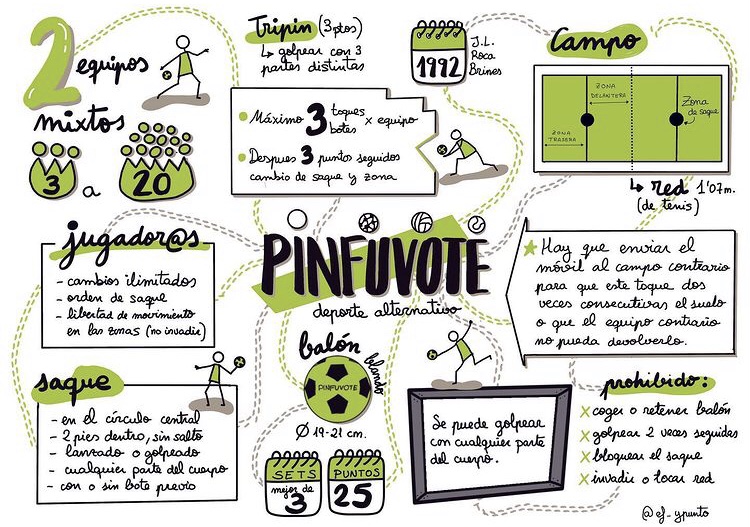 2 equipos
mixtos
3 a 20
Tripin (3 ptos)
↳ golpear con 3
partes distintas
1992
J.L.
Roca
Brines
Campo
ZONA
DELANTERA
ZONA
TRASERA
Zona
de saque
↳ red 1'07 m.
(de tenis)
• Máximo 3 toques
botes x equipo
• Despues 3 puntos seguidos
cambio de saque y zona
jugador@s
- cambios ilimitados
- orden de saque
- libertad de movimiento
en las zonas (no invadir)
PINFUVOTE
deporte alternativo
Hay que enviar el
móvil al campo contrario
para que este toque dos
veces consecutivas el suelo
o que el equipo contrario
no pueda devolverlo.
saque
- en el círculo central
- 2 pies dentro, sin salto
- lanzado o golpeado
- cualquier parte del cuerpo
- con o sin bote previo
balón
blando
PINFUVOTE
Ø 19-21 cm.
SETS
mejor de
3
PUNTOS
25
Se puede golpear
con cualquier parte
del cuerpo.
prohibido:
x coger o retener balón
x golpear 2 veces seguidas
x bloquear el saque
x invadir o tocar red
@ef_ypunto